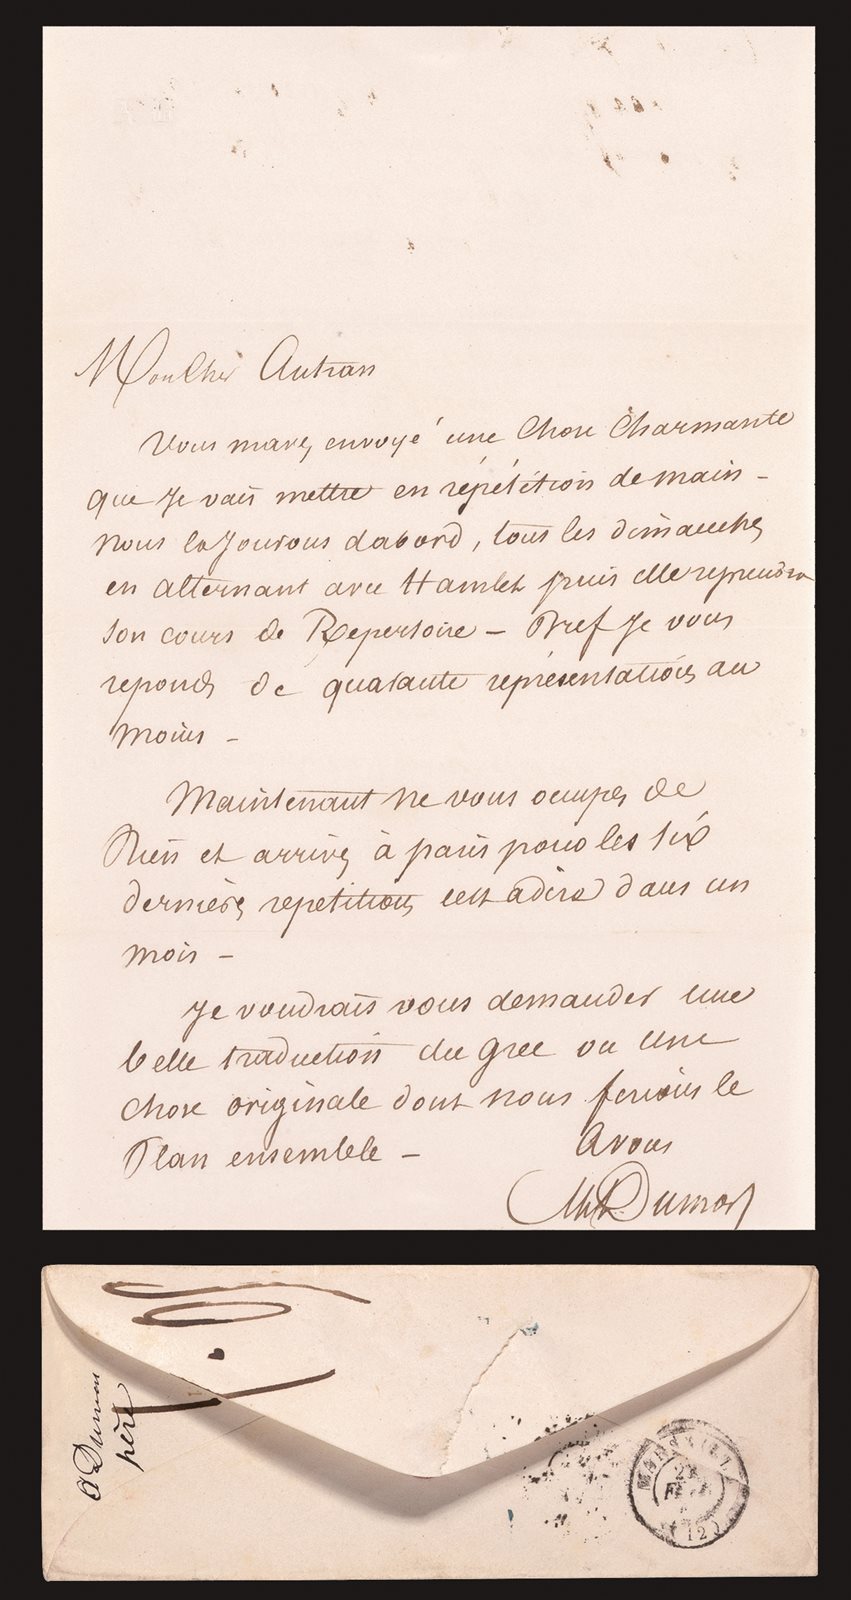 Mon Cher Autran
Vous mavez envoyé une chose charmante
que Je vais mettre en répétition demain –
nous la Jouerons dabord, tous les dimanches
en alternant avec Hamlet puis elle reprendra
son cours de Repertoire – Bref Je vous
reponds de quarante représentations au
moins –
Maintenant ne vous ocupez de
Rien et arrivez à paris pour les six
dernières repetitions cest adire dans un
mois –
Je voudrais vous demander une
belle traduction du grec ou une
chose originale dont nous ferions le
Plan ensemble –
A vous
Alex Dumas
A Dumas
père
MARSEILLE
(12)